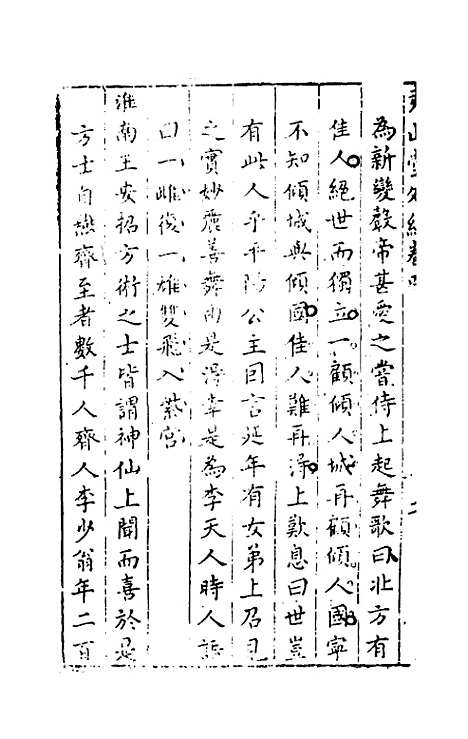 堯山堂外紀卷四
為新變聲帝甚愛之嘗侍上起舞歌曰北方有
佳人絕世而獨立一顧傾人城再顧傾人國寧
不知傾城與傾國佳人難再得上歎息曰世豈
有此人乎平陽公主因言延年有女弟上召見
之實妙麗善舞由是得幸是為李夫人時人語
曰一雌復一雄雙飛入紫宮
淮南王安招方術之士皆謂神仙上聞而喜於是
方士自燕齊至者數千人齊人李少翁年二百